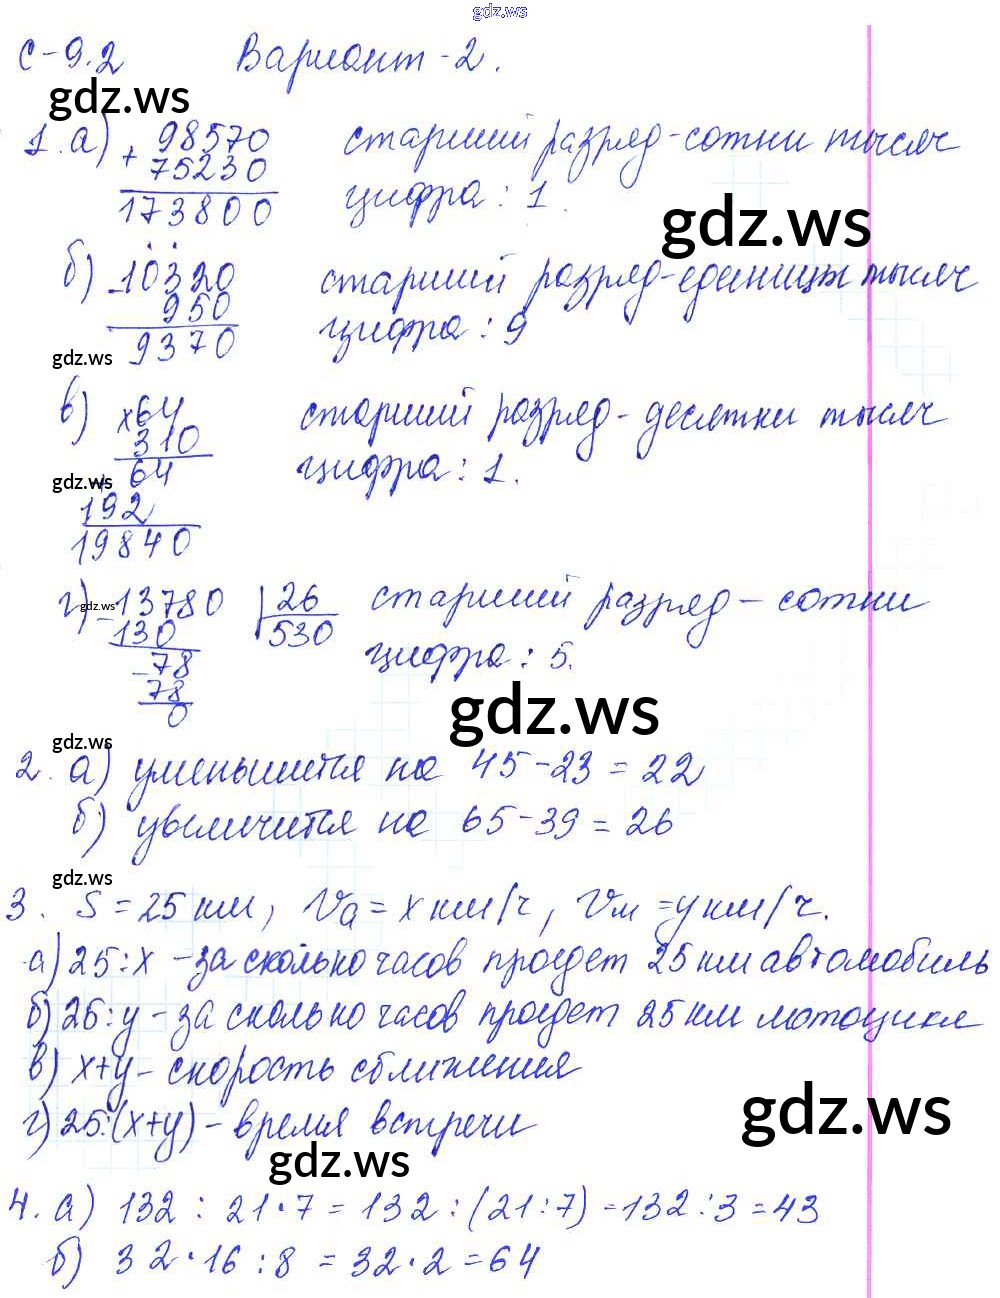 gdz.ws
С-9.2 Вариант-2.
gdz.ws
1. а) + 98570 старший разряд-сотни тысяч
75230 цифра: 1.
173800
gdz.ws
б) - 10320 старший разряд-единицы тысяч
950 цифра: 9
9370
gdz.ws
в) x 64 старший разряд-десятки тысяч
310 цифра: 1.
+ 64
gdz.ws
192
19840
г) - 13780 | 26 старший разряд - сотни
gdz.ws
130 530 цифра: 5.
- 78
78
0
gdz.ws
gdz.ws
2. а) уменьшится на 45-23=22
б) увеличится на 65-39=26
gdz.ws
3. S=25 км, Vа=x км/ч, Vм=y км/ч.
а) 25:x - за сколько часов проедет 25 км автомобиль
б) 25:y - за сколько часов проедет 25 км мотоцикл
в) x+y - скорость сближения
г) 25:(x+y) - время встречи
gdz.ws
gdz.ws
4. а) 132 : 21·7 = 132 : (21:7) = 132:3 = 43
б) 32·16 : 8 = 32·2 = 64